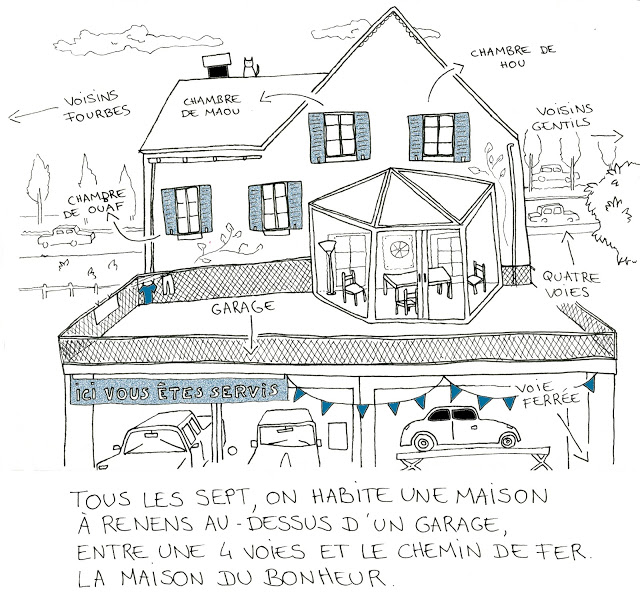 CHAMBRE DE
HOU
VOISINS
FOURBES
CHAMBRE
DE MAOU
VOISINS
GENTILS
CHAMBRE
DE OUAF
QUATRE
VOIES
GARAGE
ICI VOUS ÊTES SERVIS
VOIE
FERRÉE
TOUS LES SEPT, ON HABITE UNE MAISON
À RENENS AU-DESSUS D'UN GARAGE,
ENTRE UNE 4 VOIES ET LE CHEMIN DE FER.
LA MAISON DU BONHEUR.